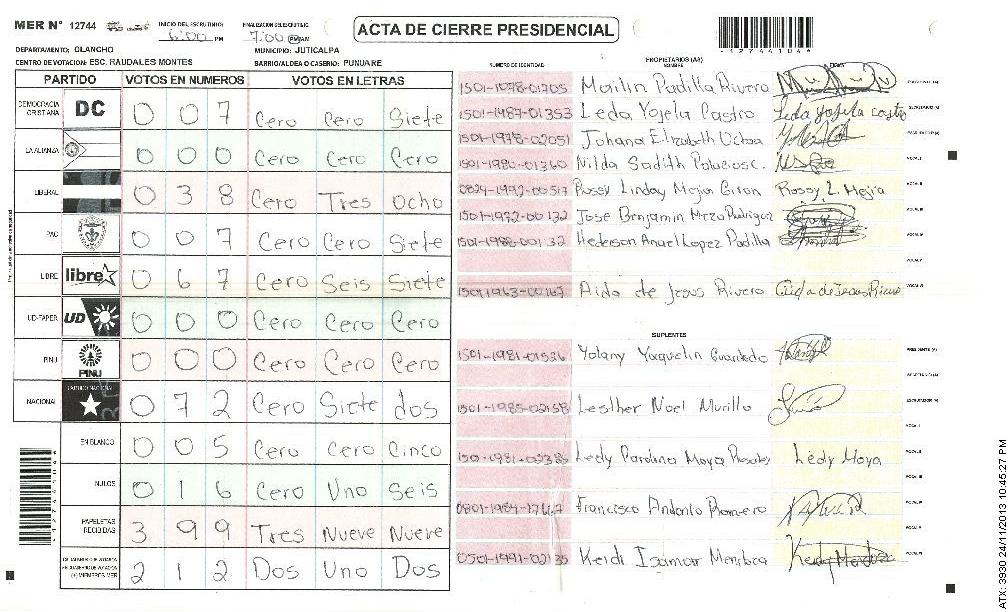 MER N° 12744 INICIO DEL ESCRUTINIO: 6:00 PM FINALIZACION ESCRUTINIO: 7:00 PM/AM
ACTA DE CIERRE PRESIDENCIAL
DEPARTAMENTO: OLANCHO MUNICIPIO: JUTICALPA
CENTRO DE VOTACION: ESC. RAUDALES MONTES BARRIO/ALDEA O CASERIO: PUNUARE
PARTIDO VOTOS EN NUMEROS VOTOS EN LETRAS
DEMOCRACIA CRISTIANA DC 0 0 7 Cero Cero Siete
LA ALIANZA 0 0 0 Cero Cero Cero
LIBERAL 0 3 8 Cero Tres Ocho
PAC 0 0 7 Cero Cero Siete
LIBRE libre 0 6 7 Cero Seis Siete
UD-FAPER UD 0 0 0 Cero Cero Cero
PINU PINU 0 0 0 Cero Cero Cero
NACIONAL PARTIDO NACIONAL 0 7 2 Cero Siete dos
EN BLANCO 0 0 5 Cero Cero Cinco
NULOS 0 1 6 Cero Uno Seis
PAPELETAS RECIBIDAS 3 9 9 Tres Nueve Nueve
2 1 2 Dos Uno Dos
NUMERO DE IDENTIDAD PROPIETARIOS (AS) NOMBRE FIRMA
1501-1978-01705 Marlin Padilla Rivera
1501-1987-01353 Leda Yojela Castro Leda Yojela Castro
1501-1978-02051 Johana Elizabeth Ochoa
1501-1980-01360 Nilda Sadith Palacios C.
0824-1992-00517 Rossy Linday Mejia Giron Rossy L. Mejia
1501-1972-00132 Jose Benjamin Meza Rodriguez
1501-1988-00132 Hederson Anael Lopez Padilla
1501-1963-00163 Aida de Jesus Rivera Aida de Jesus Rivera
SUPLENTES
1501-1981-01536 Yolany Yaquelin Guardado
1501-1985-02158 Lesther Noel Murillo
Ledy Carolina Moya Rosales Ledy Moya
Francisco Antonio Romero
0501-1991-02135 Keidi Isamar Mendoza
12744104
ATX: 3930 24/11/2013 10:45:27 PM